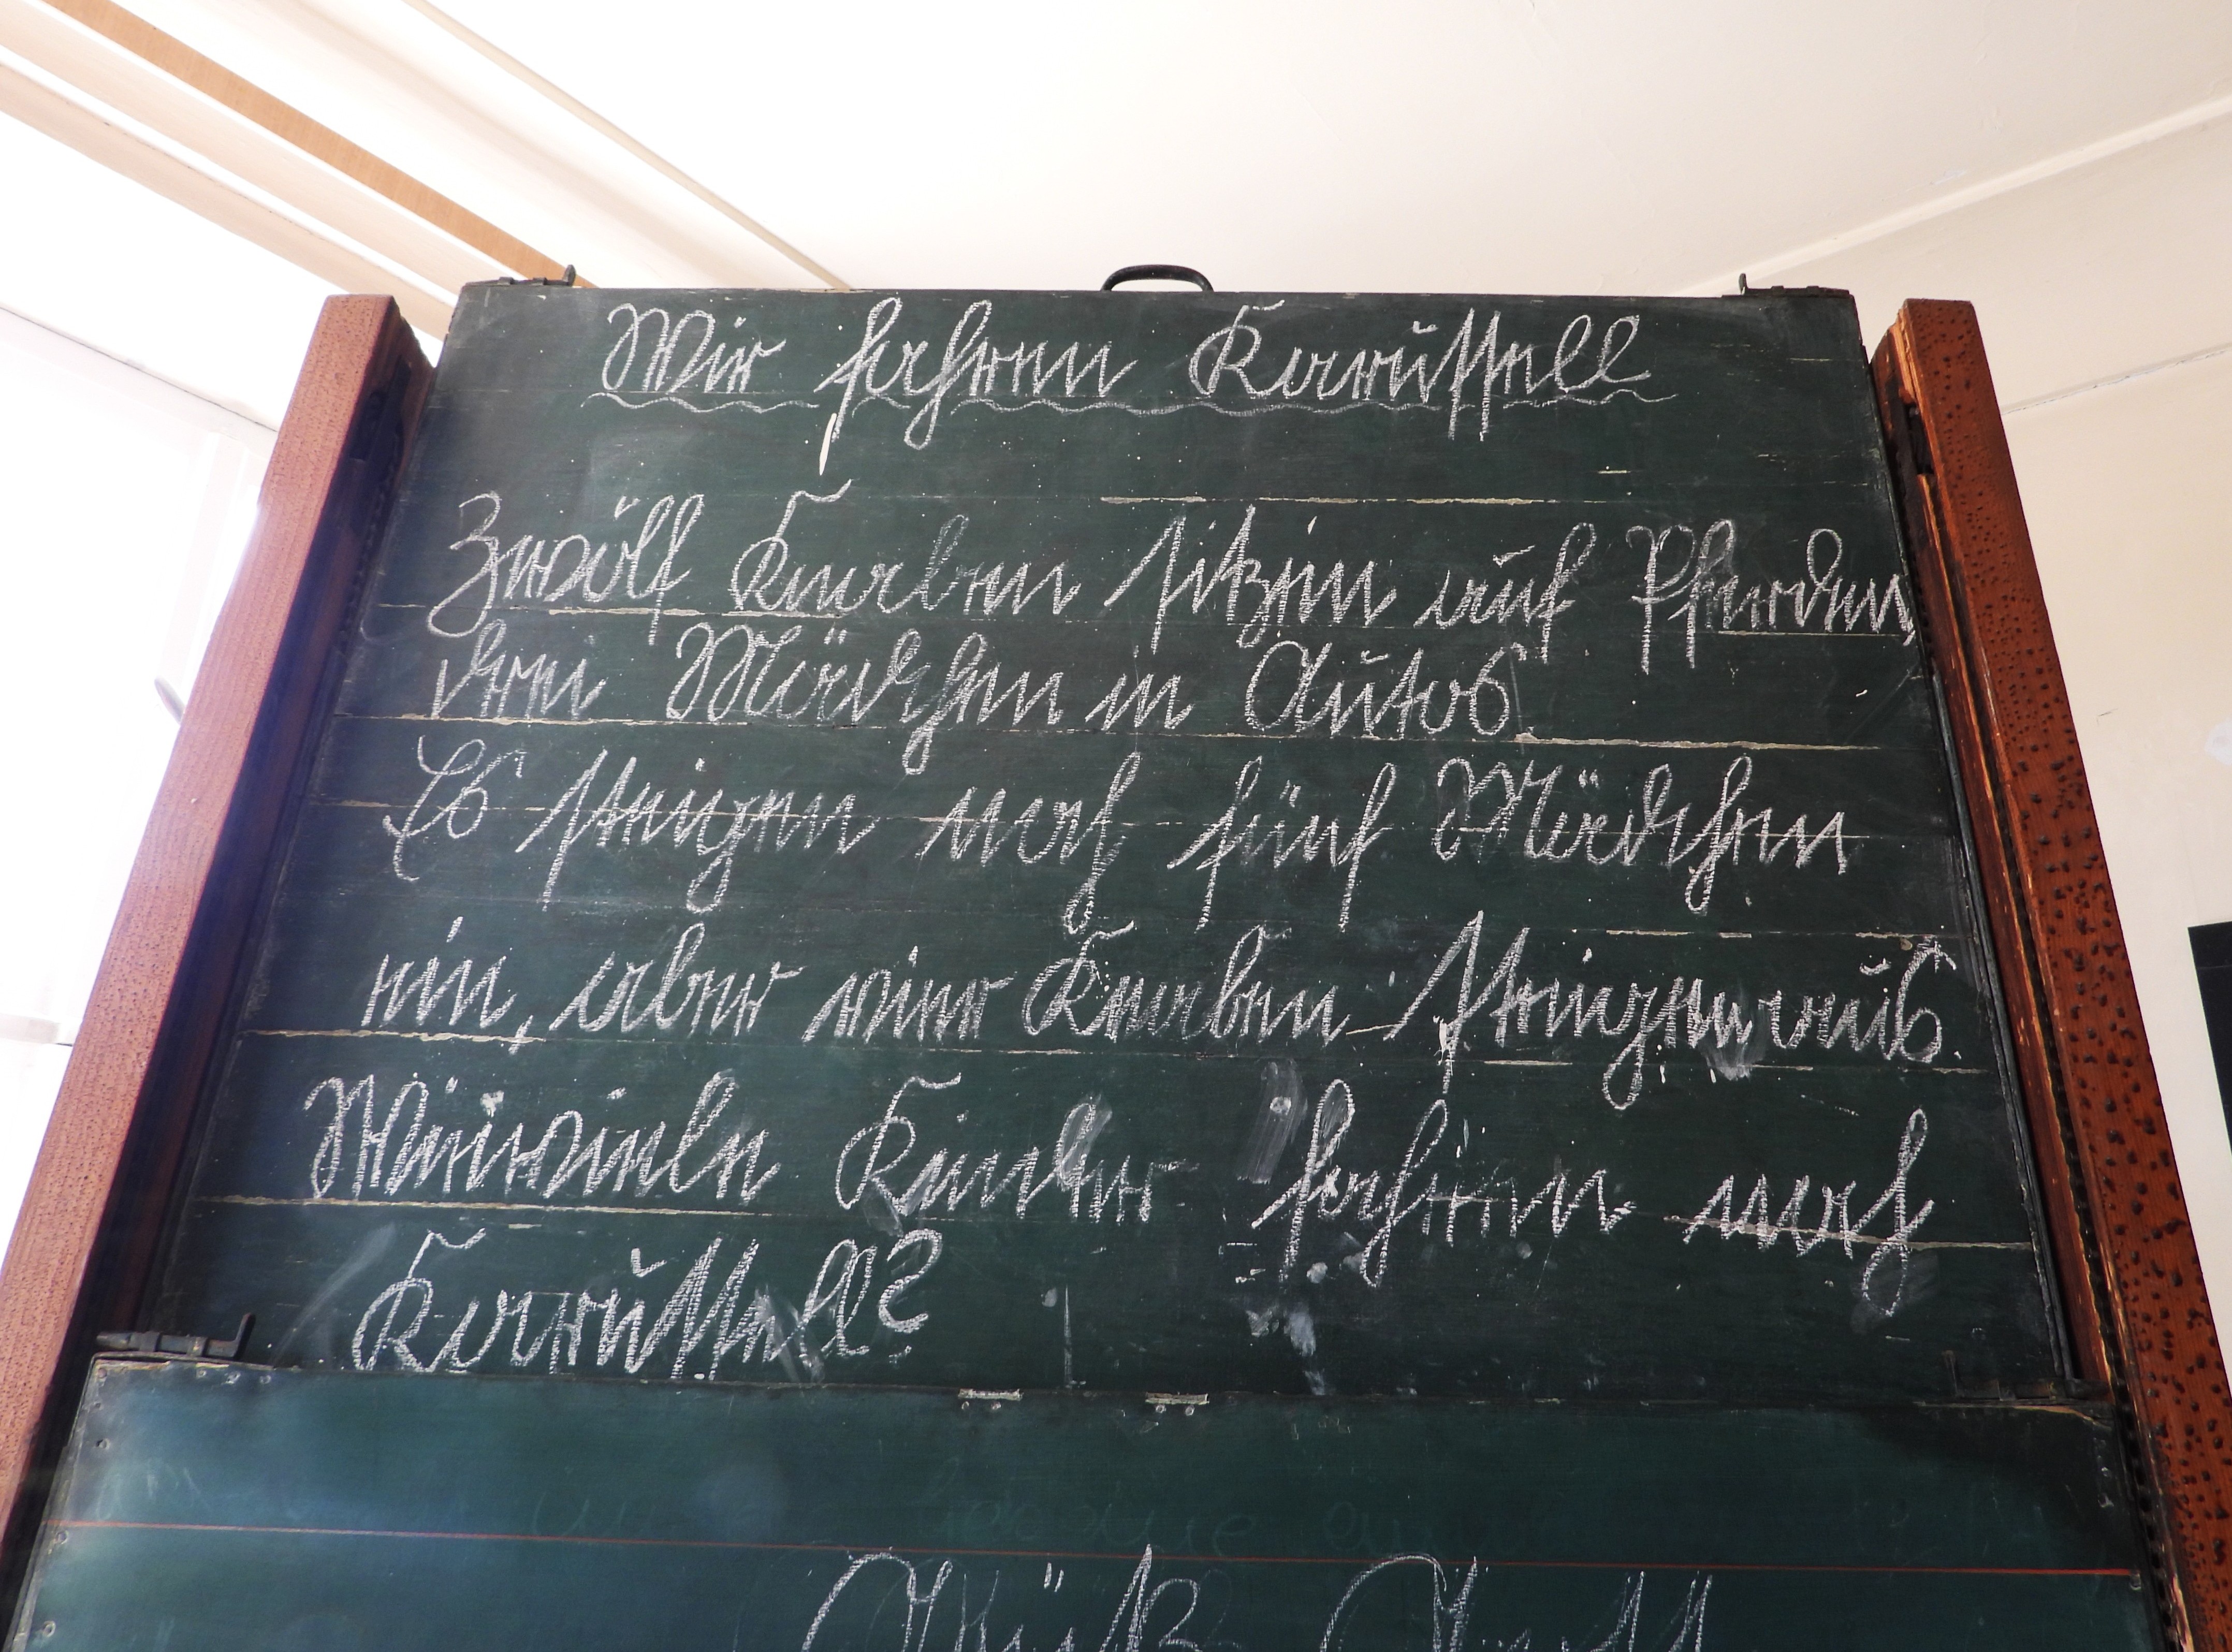 Wir fahren Karussell
Zwölf Knaben sitzen auf Pferden,
drei Mädchen in Autos.
Es steigen noch fünf Mädchen
ein, aber vier Knaben steigen aus.
Wieviele Kinder fahren noch
Karussell?
Grüß Gott